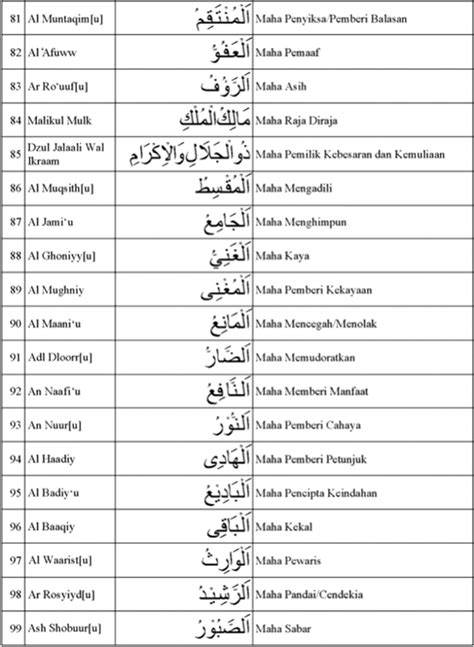 81 Al Muntaqim[u] اَلْمُنْتَقِمُ Maha Penyiksa/Pemberi Balasan
82 Al 'Afuww اَلْعَفُوُّ Maha Pemaaf
83 Ar Ro'uuf[u] اَلرَّؤُفُ Maha Asih
84 Malikul Mulk مَالِكُ الْمُلْكِ Maha Raja Diraja
85 Dzul Jalaali Wal Ikraam ذُوالْجَلَالِ وَالْاِكْرَامِ Maha Pemilik Kebesaran dan Kemuliaan
86 Al Muqsith[u] اَلْمُقْسِطُ Maha Mengadili
87 Al Jami'u اَلْجَامِعُ Maha Menghimpun
88 Al Ghoniyy[u] اَلْغَنِيُّ Maha Kaya
89 Al Mughniy اَلْمُغْنِى Maha Pemberi Kekayaan
90 Al Maani'u اَلْمَانِعُ Maha Mencegah/Menolak
91 Adl Dloorr[u] اَلضَّارُّ Maha Memudoratkan
92 An Naafi'u اَلنَّافِعُ Maha Memberi Manfaat
93 An Nuur[u] اَلنُّوْرُ Maha Pemberi Cahaya
94 Al Haadiy اَلْهَادِى Maha Pemberi Petunjuk
95 Al Badiy'u اَلْبَادِيْعُ Maha Pencipta Keindahan
96 Al Baaqiy اَلْبَاقِى Maha Kekal
97 Al Waarist[u] اَلْوَارِثُ Maha Pewaris
98 Ar Rosyiyd[u] اَلرَّشِيْدُ Maha Pandai/Cendekia
99 Ash Shobuur[u] اَلصَّبُوْرُ Maha Sabar